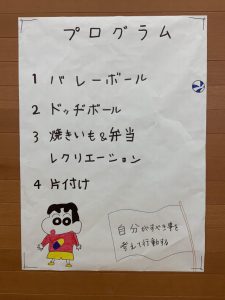 プログラム
1 バレーボール
2 ドッヂボール
3 焼きいも&弁当
レクリエーション
4 片付け
自分がすべき事を
考えて行動する